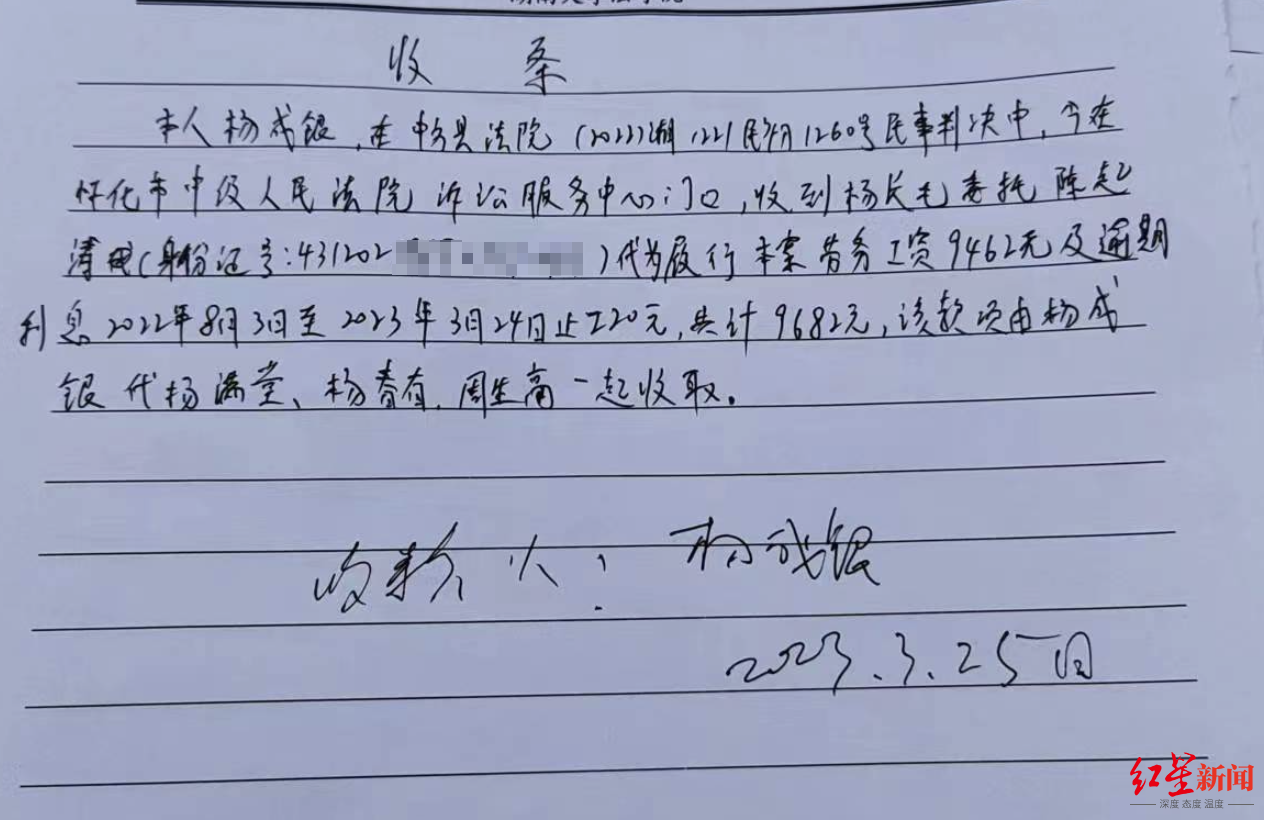 收 条
本人杨成银，在中方县法院（2022）湘1221民初1260号民事判决中，今在
怀化市中级人民法院诉讼服务中心门口，收到杨长毛委托陈起
清（身份证号：431202 ）代为履行本案劳务工资9462元及逾期
利息2022年8月3日至2023年3月24日止220元，共计9682元，该款项由杨成
银代杨满堂、杨春有、周生高一起收取。
收款人：杨成银
2023.3.25日
红星新闻
深度 态度 温度